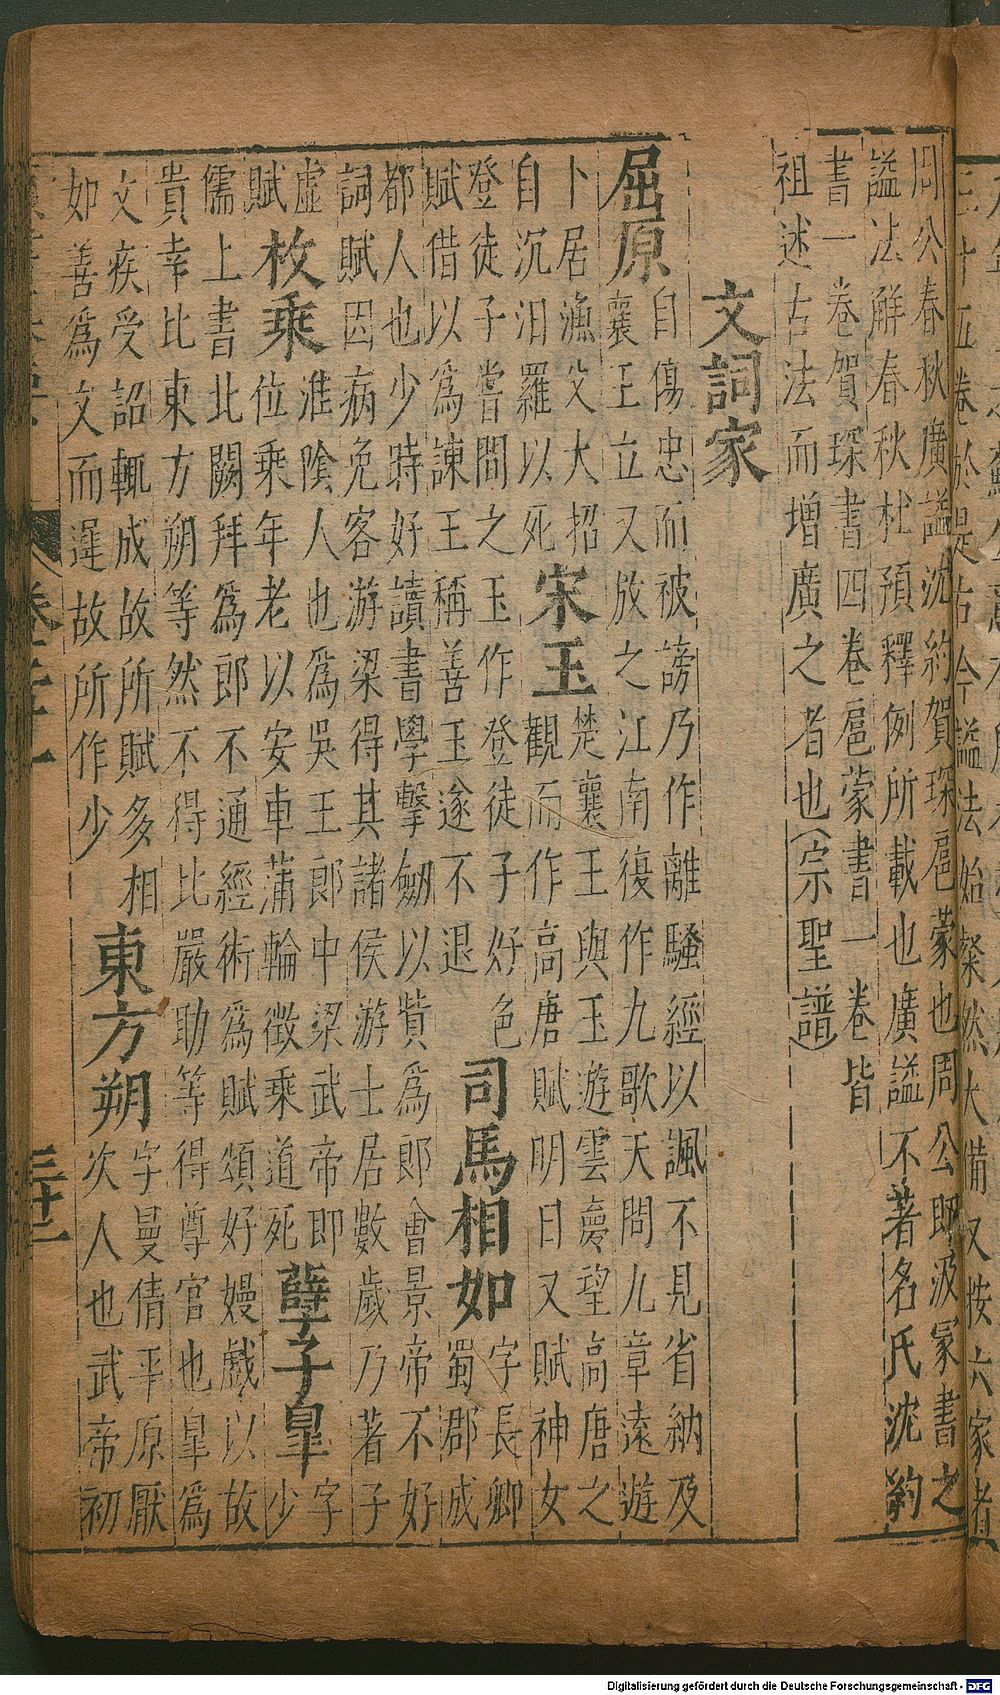 三十五卷於是古今諡法始粲然大備又按六家者
周公春秋廣諡沈約賀琛扈蒙也周公即汲冢書之
諡法解春秋杜預釋例所載也廣諡不著名氏沈約
書一卷賀琛書四卷扈蒙書一卷皆
祖述古法而增廣之者也(宗聖譜)
文詞家
屈原
自傷忠而被謗乃作離騷經以諷不見省納及
襄王立又放之江南復作九歌天問九章遠遊
卜居漁父大招
自沉汨羅以死
宋玉
楚襄王與玉遊雲夢望高唐之
觀而作高唐賦明日又賦神女
登徒子嘗問之玉作登徒子好色
賦借以爲諫王稱善玉遂不退
司馬相如
字長卿
蜀郡成
都人也少時好讀書學擊劒以貲爲郎會景帝不好
詞賦因病免客游梁得其諸侯游士居數歲乃著子
虛
賦
枚乘
淮陰人也爲吳王郎中梁武帝即
位乘年老以安車蒲輪徵乘道死
孽子皐
字
少
儒上書北闕拜爲郎不通經術爲賦頌好嫚戲以故
貴幸比東方朔等然不得比嚴助等得尊官也皐爲
文疾受詔輒成故所賦多相
如善爲文而遲故所作少
東方朔
字曼倩平原厭
次人也武帝初
三十二
Digitalisierung gefördert durch die Deutsche Forschungsgemeinschaft - DFG